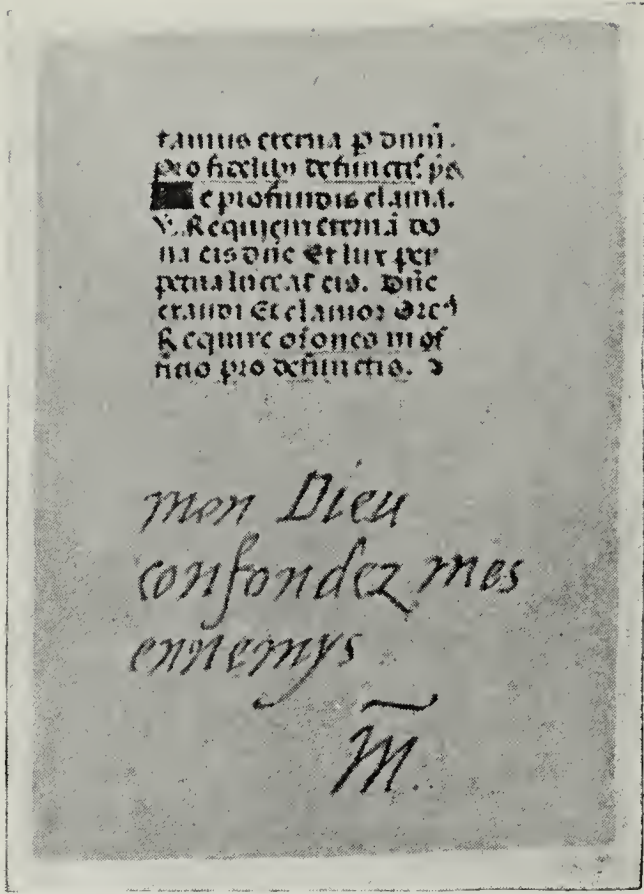 tamus eterna p dnm̄.
pro fidelibꝫ defunctis ps
De profundis clama.
V. Requiem eternā do
na eis dn̄e Et lux per
petua luceat eis. Dn̄e
exaudi Et clamor
Require ōsones in of
ficio pro defunctis.
mon Dieu
confondez mes
ennemys
M.